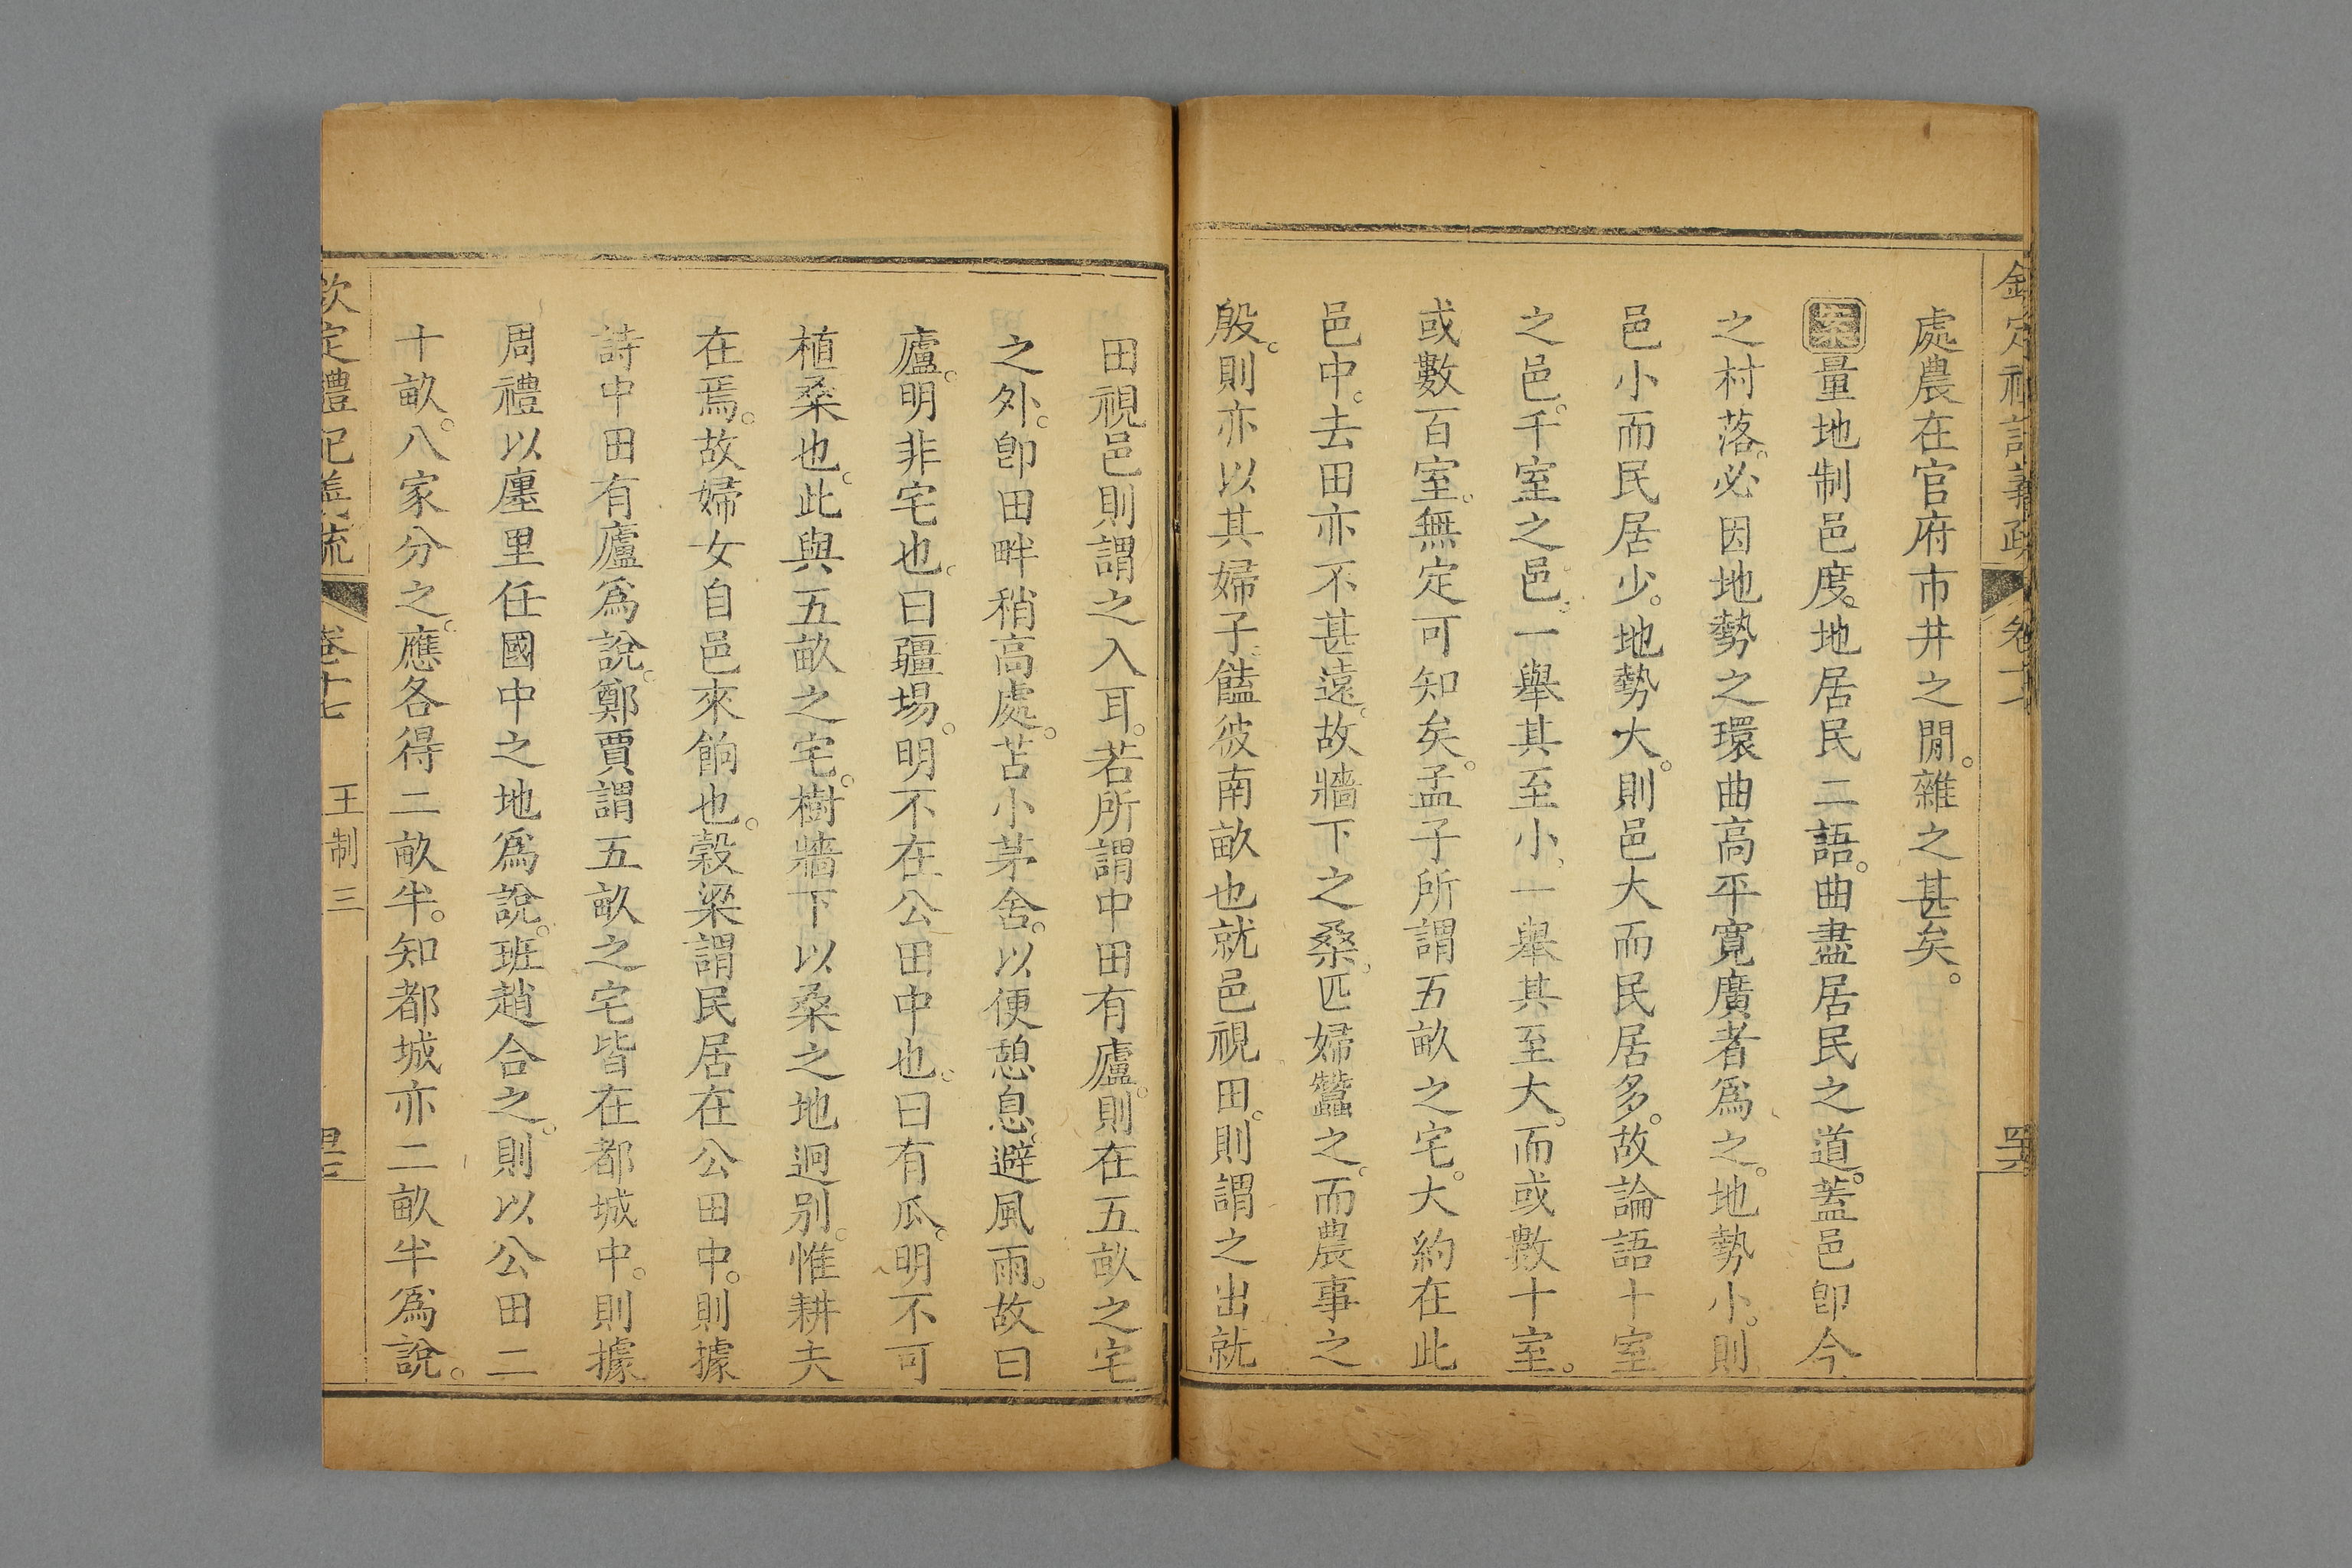 處農在官府市井之閒。雜之甚矣。
案量地制邑度。地居民二語。曲盡居民之道。蓋邑卽今
之村落。必因地勢之環曲高平寬廣者爲之。地勢小。則
邑小而民居少。地勢大。則邑大而民居多。故論語十室
之邑。千室之邑。一舉其至小、一舉其至大。而或數十室。
或數百室。無定可知矣。孟子所謂五畝之宅。大約在此
邑中。去田亦不甚遠。故牆下之桑、匹婦蠶之。而農事之
殷。則亦以其婦子饁彼南畝也就邑視田。則謂之出就
田視邑則謂之入耳。若所謂中田有廬。則在五畝之宅
之外。卽田畔稍高處。苫小茅舍。以便憩息。避風雨。故曰
廬。明非宅也。曰疆場。明不在公田中也。曰有瓜。明不可
植桑也。此與五畝之宅。樹牆下以桑之地迥别。惟耕夫
在焉。故婦女自邑來餉也。穀梁謂民居在公田中。則據
詩中田有廬爲說。鄭賈謂五畝之宅皆在都城中。則據
周禮以廛里任國中之地爲說。班趙合之。則以公田二
十畝。八家分之。應各得二畝半。知都城亦二畝半爲說。
欽定禮記義疏 卷十七 王制三